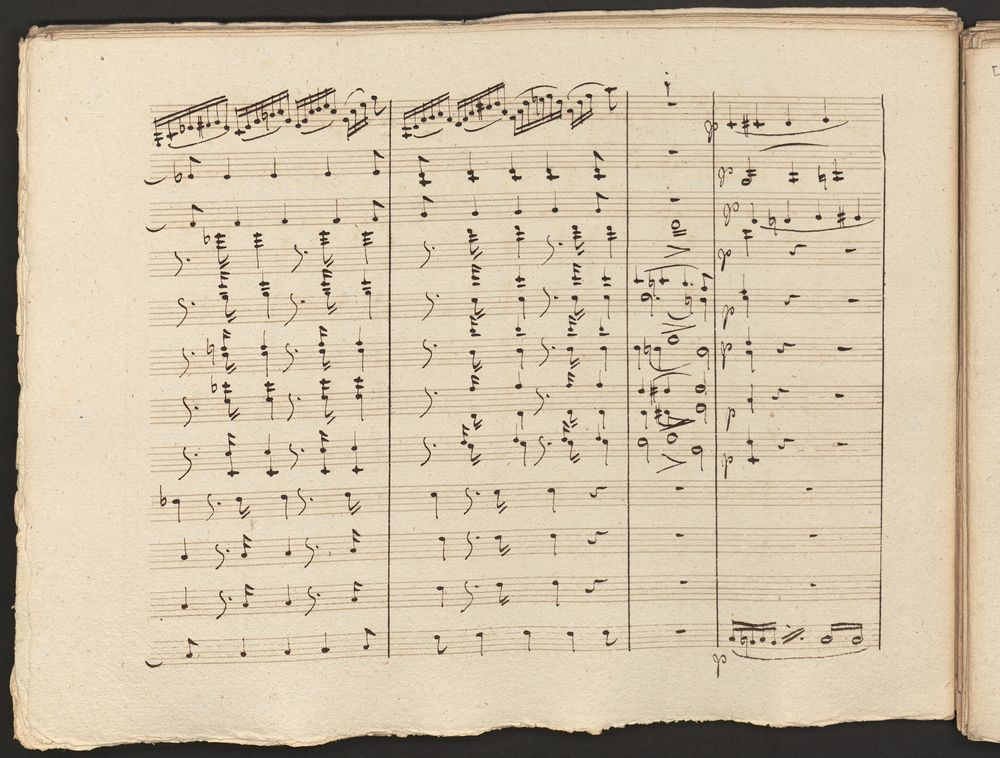 p
p
p
p
p
p
p
p
p